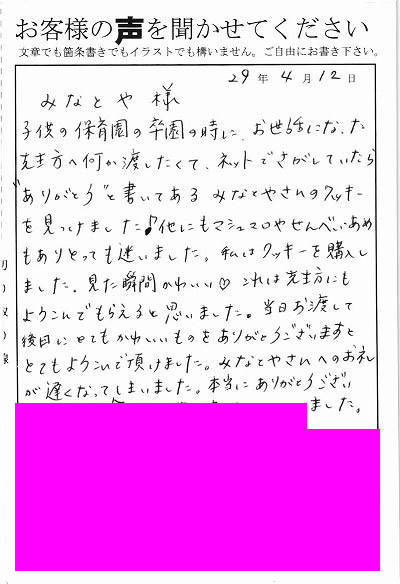 お客様の声を聞かせてください
文章でも箇条書きでもイラストでも構いません。ご自由にお書き下さい。
29年4月12日
みなとや 様
子供の保育園の卒園の時に、お世話になった
先生方へ何か渡したくて、ネットでさがしていたら
"ありがとう"と書いてある みなとやさんのクッキー
を見つけました♪他にもマシュマロやせんべい、あめ
もありとっても迷いました。私はクッキーを購入し
ました。見た瞬間かわいい♡ これは先生方にも
よろこんでもらえると思いました。当日お渡しして
後日にとてもかわいいものをありがとうございますと
とてもよろこんで頂けました。みなとやさんへのお礼
が遅くなってしまいました。本当にありがとうござい
ました。
切り取り線